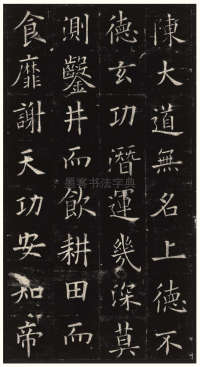 陳大道無名上德不
德玄功潛運幾深莫
測鑿井而飲耕田而
食靡謝天功安知帝